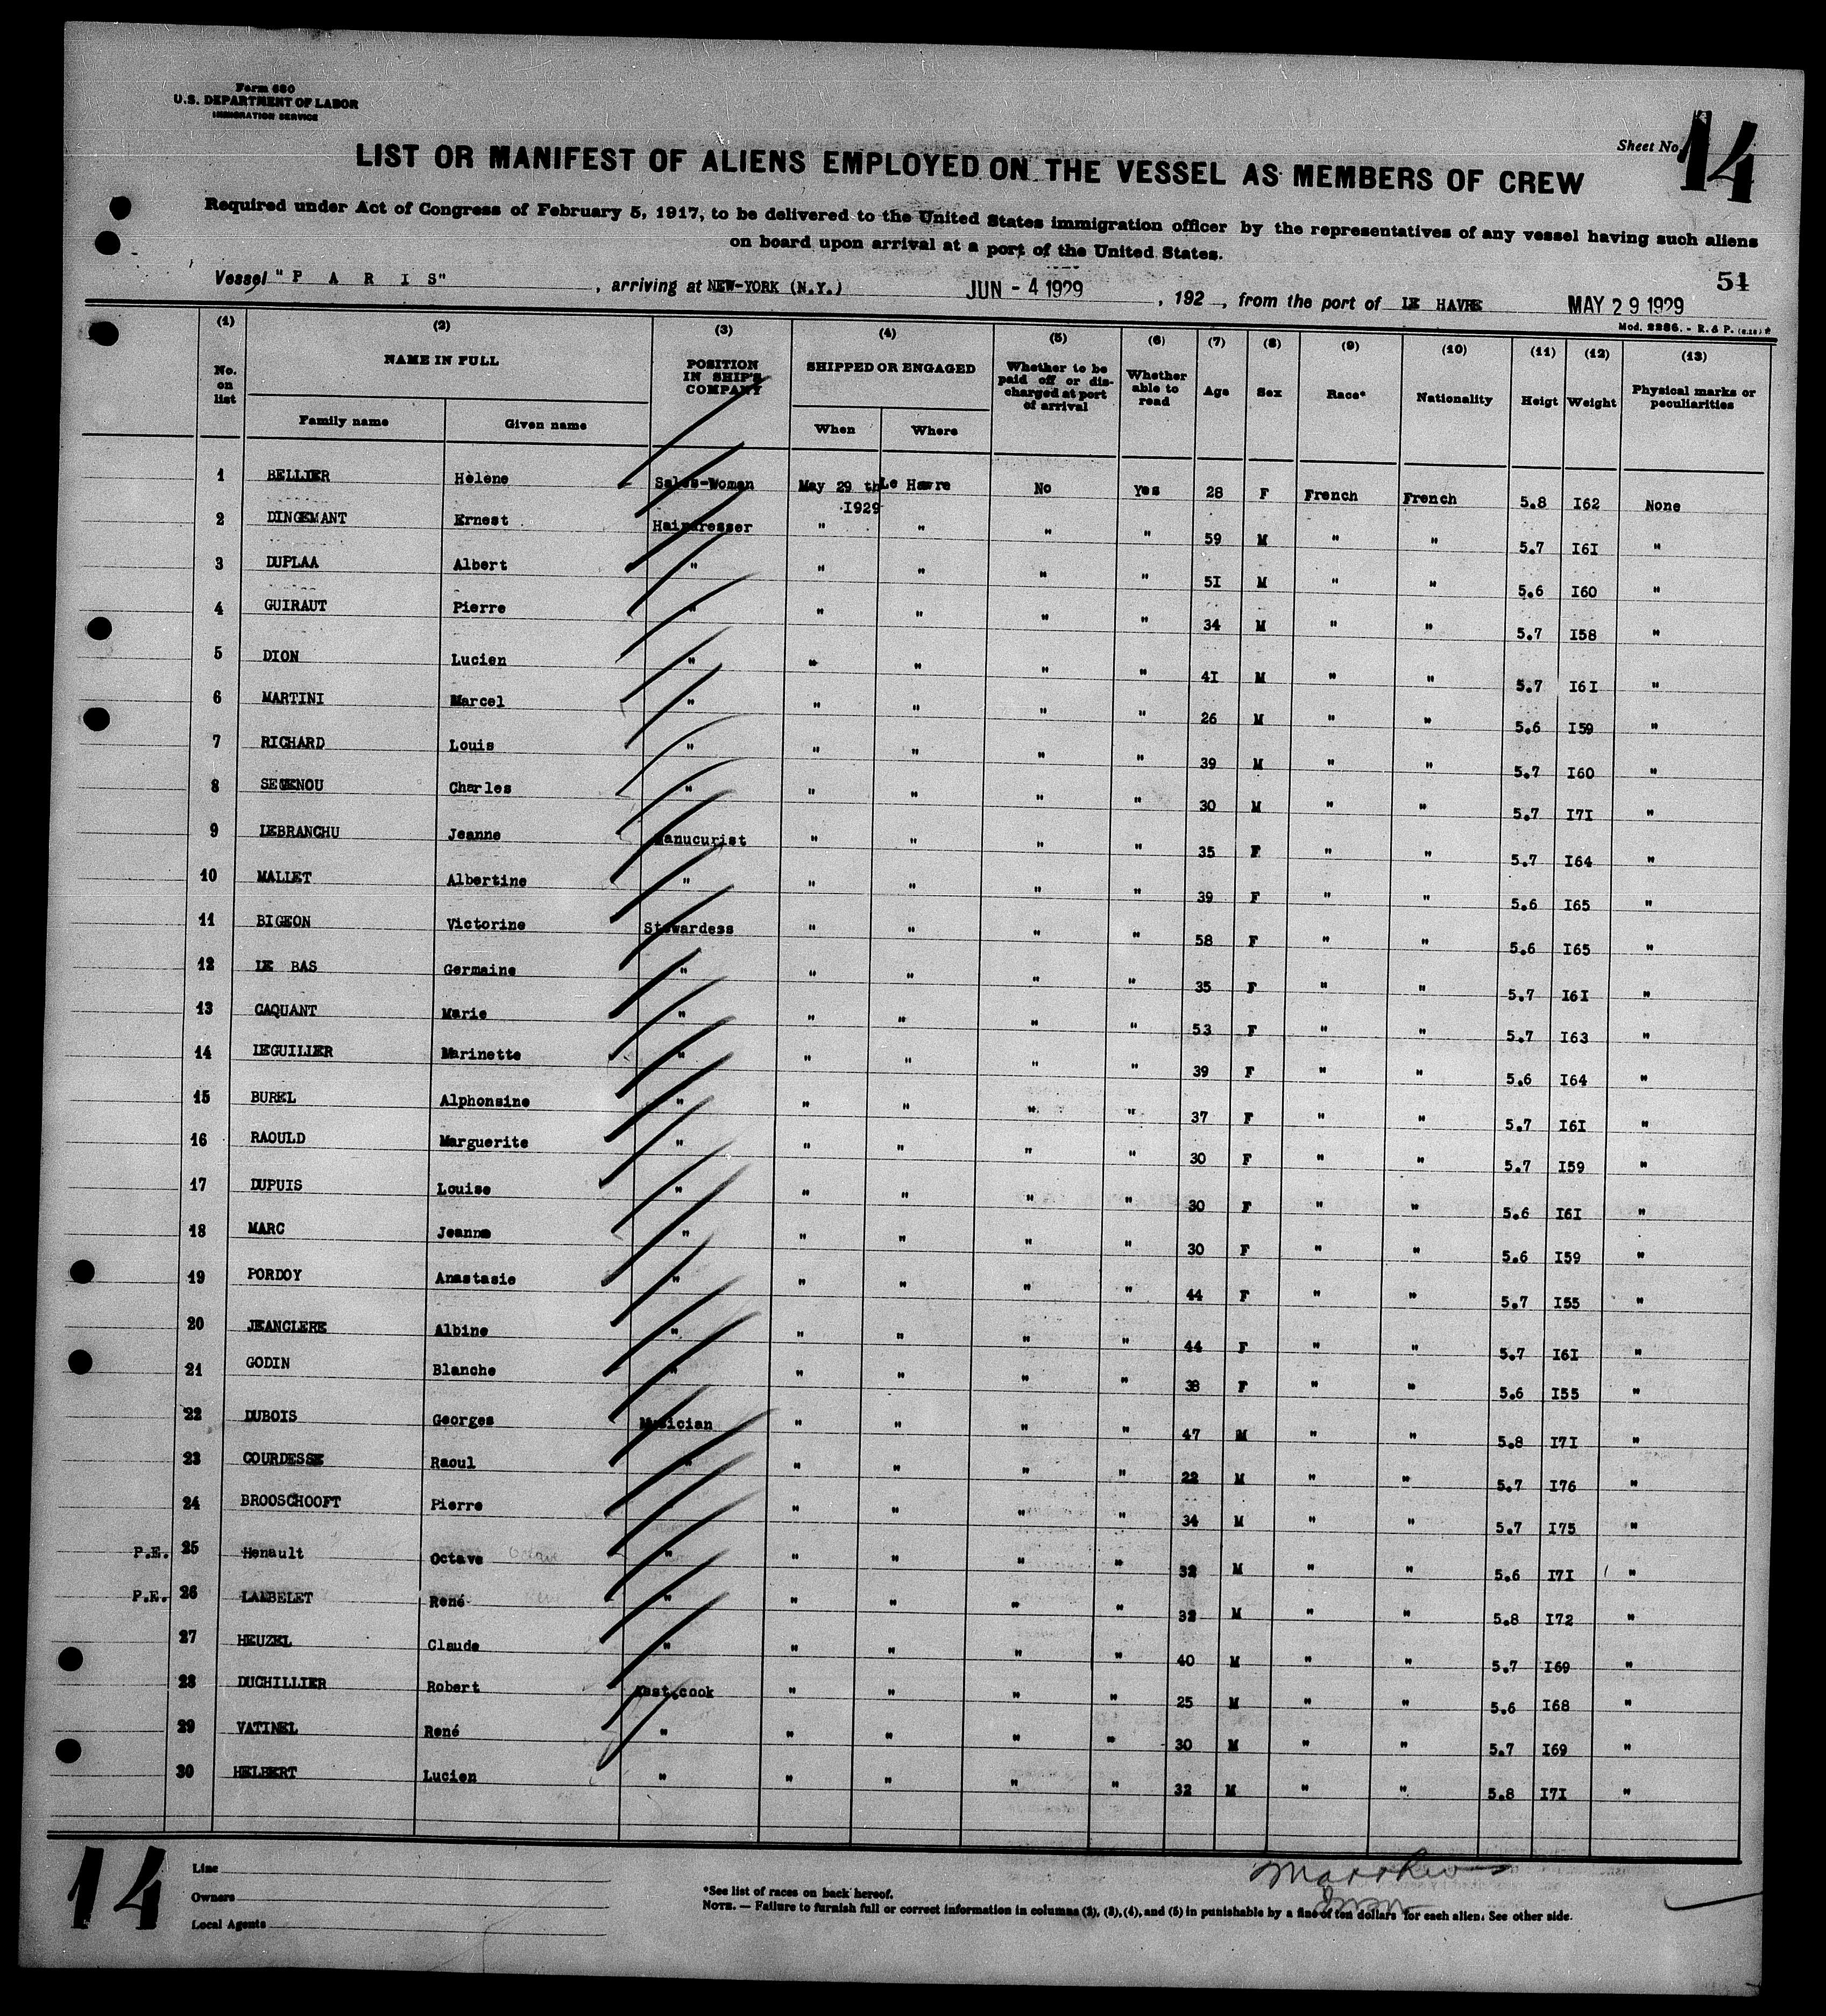 Form 680
U.S. DEPARTMENT OF LABOR
IMMIGRATION SERVICE
Sheet No. 14
LIST OR MANIFEST OF ALIENS EMPLOYED ON THE VESSEL AS MEMBERS OF CREW
Required under Act of Congress of February 5, 1917, to be delivered to the United States immigration officer by the representatives of any vessel having such aliens
on board upon arrival at a port of the United States.
51
Vessel "P A R I S" , arriving at NEW-YORK (N.Y.) JUN - 4 1929 , 192 , from the port of LE HAVRE MAY 29 1929
Mod. 2286. - R. & P. (6.28) *
(1) (2) (3) (4) (5) (6) (7) (8) (9) (10) (11) (12) (13)
No. on list NAME IN FULL POSITION IN SHIP'S COMPANY SHIPPED OR ENGAGED Whether to be paid off or discharged at port of arrival Whether able to read Age Sex Race* Nationality Heigt Weight Physical marks or peculiarities
Family name Given name When Where
1 BELLIER Hélène Sales-Woman May 29 th 1929 Le Havre No Yes 28 F French French 5.8 I62 None
2 DINGEMANT Ernest Hairdresser " " " " 59 M " " 5.7 I6I "
3 DUPLAA Albert " " " " " 5I M " " 5.6 I60 "
4 GUIRAUT Pierre " " " " " 34 M " " 5.7 I58 "
5 DION Lucien " " " " " 4I M " " 5.7 I6I "
6 MARTINI Marcel " " " " " 26 M " " 5.6 I59 "
7 RICHARD Louis " " " " " 39 M " " 5.7 I60 "
8 SEGENOU Charles " " " " " 30 M " " 5.7 I7I "
9 LEBRANCHU Jeanne Manucurist " " " " 35 F " " 5.7 I64 "
10 MALLET Albertine " " " " " 39 F " " 5.6 I65 "
11 BIGEON Victorine Stewardess " " " " 58 F " " 5.6 I65 "
12 LE BAS Germaine " " " " " 35 F " " 5.7 I6I "
13 CAQUANT Marie " " " " " 53 F " " 5.7 I63 "
14 LEGUILIER Marinette " " " " " 39 F " " 5.6 I64 "
15 BUREL Alphonsine " " " " " 37 F " " 5.7 I6I "
16 RAOULD Marguerite " " " " " 30 F " " 5.7 I59 "
17 DUPUIS Louise " " " " " 30 F " " 5.6 I6I "
18 MARC Jeanne " " " " " 30 F " " 5.6 I59 "
19 PORDOY Anastasie " " " " " 44 F " " 5.7 I55 "
20 JEANCLERE Albine " " " " " 44 F " " 5.7 I6I "
21 GODIN Blanche " " " " " 38 F " " 5.6 I55 "
22 DUBOIS Georges Musician " " " " 47 M " " 5.8 I7I "
23 COURDESSE Raoul " " " " " 22 M " " 5.7 I76 "
24 BROOSCHOOFT Pierre " " " " " 34 M " " 5.7 I75 "
P.E. 25 Henault Octave " " " " " 32 M " " 5.6 I7I "
P.E. 26 LAMBELET René " " " " " 32 M " " 5.8 I72 "
27 HEUZEL Claude " " " " " 40 M " " 5.7 I69 "
28 DUCHILLIER Robert Asst.cook " " " " 25 M " " 5.6 I68 "
29 VATINEL René " " " " " 30 M " " 5.7 I69 "
30 HELBERT Lucien " " " " " 32 M " " 5.8 I7I "
14
Line
Owners
Local Agents
*See list of races on back hereof.
NOTE. — Failure to furnish full or correct information in columns (2), (3), (4), and (5) in punishable by a fine of ten dollars for each alien. See other side.